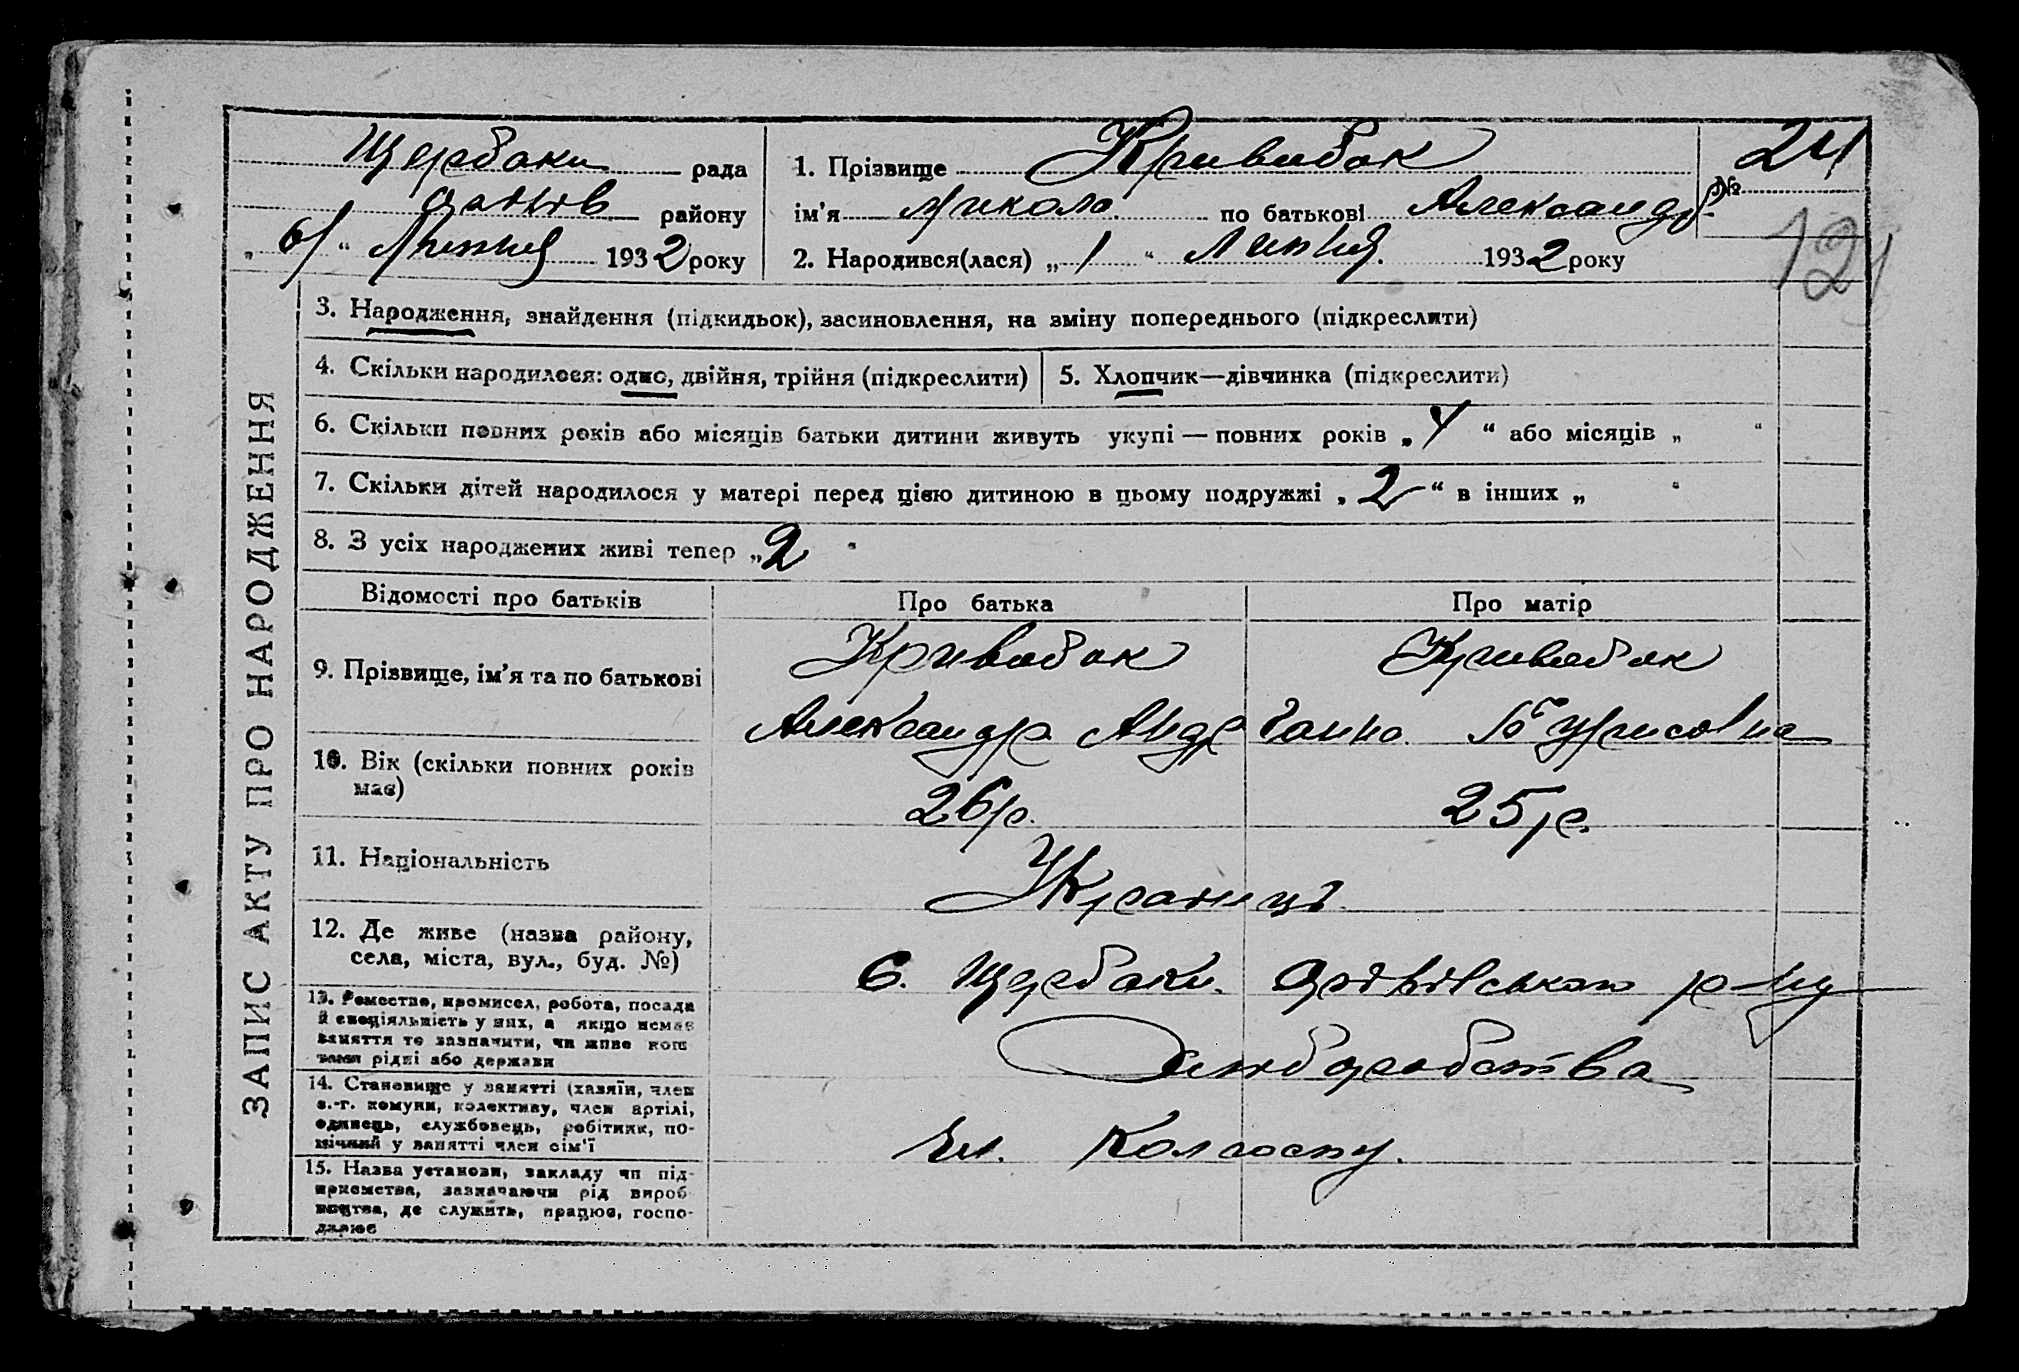 Щербаки рада
району
„ 6 “ Липня 1932 року
1. Прізвище Кривобок
ім'я Микола по батькові Александр.
2. Народився(лася) „ 1 “ Липня 1932 року
№ 24
121
ЗАПИС АКТУ ПРО НАРОДЖЕННЯ
3. Народження, знайдення (підкидьок), засиновлення, на зміну попереднього (підкреслити)
4. Скільки народилося: одно, двійня, трійня (підкреслити)
5. Хлопчик—дівчинка (підкреслити)
6. Скільки повних років або місяців батьки дитини живуть укупі — повних років „ “ або місяців „ “
7. Скільки дітей народилося у матері перед цією дитиною в цьому подружжі „ 2 “ в інших „ “
8. З усіх народжених живі тепер „ 2 “
Відомості про батьків
Про батька
Про матір
9. Прізвище, ім'я та по батькові
Кривобок
Александр Андр
Кривобок
Ганна
10. Вік (скільки повних років
має)
26 р.
25 р.
11. Національність
Українці
12. Де живе (назва району,
села, міста, вул., буд. №)
С. Щербаки р-ну
13. Ремество, промисел, робота, посада
й спеціяльність у них, а якщо немає
заняття то зазначити, чи живе кош
тами рідні або держави
Хліборобства
14. Становище у занятті (хазяїн, член
с.-г. комуни, колективу, член артілі,
одинець, службовець, робітник, по-
мічний у занятті член сім'ї
Чл. Колгоспу.
15. Назва установи, закладу чи під-
приємства, зазначаючи рід вироб
ництва, де служить, працює, госпо-
дарює